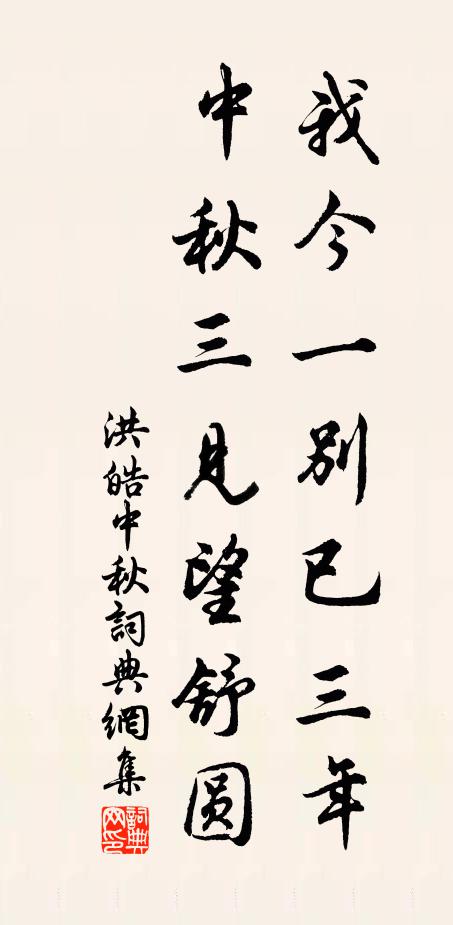 我今一别已三年
中秋三见望舒圆
洪皓中秋詞典網集
詞典网印